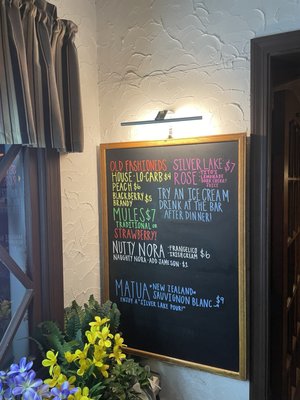 OLD FASHIONEDS
HOUSE • LO-CARB $4
PEACH $6
BLACKBERRY $5
BRANDY
MULES $7
TRADITIONAL OR
STRAWBERRY!
NUTTY NORA - FRANGELICO
IRISH CREAM $6
NAUGHTY NORA - ADD JAMESON - $1
SILVER LAKE $7
ROSE - TITO'S
LEMONADE
SODA CHERRY
JUICE
TRY AN ICE CREAM
DRINK AT THE BAR
AFTER DINNER!
MATUA "NEW ZEALAND"
SAUVIGNON BLANC $9
ENJOY A "SILVER LAKE POUR!"